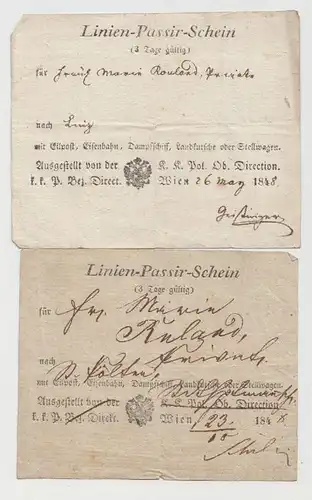 Linien-Passir-Schein
(3 Tage gültig)
für Fräul. Marie Rouland, Private
nach Linz
mit Eilpost, Eisenbahn, Dampfschiff, Landkutsche oder Stellwagen.
Ausgestellt von der K. K. Pol. Ob. Direction.
k. k. P. Bez. Direct. Wien 26 May 1848
Geistinger
Linien-Passir-Schein
(3 Tage gültig)
für Fr. Marie
Ruland,
nach Private
St. Pölten
mit Eilpost, Eisenbahn, Dampfschiff, Landkutsche oder Stellwagen.
Ausgestellt von der K. K. Pol. Ob. Direction
k. k. P. Bez. Direkt. Wien 23 1848